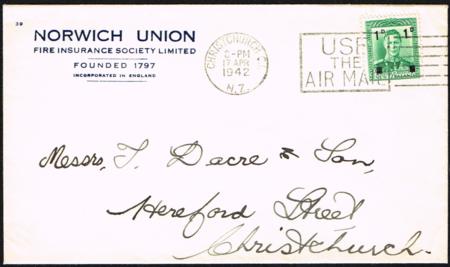 39
NORWICH UNION
FIRE INSURANCE SOCIETY LIMITED
FOUNDED 1797
INCORPORATED IN ENGLAND
CHRISTCHURCH
2-PM
17 APR
1942
N.Z.
USE
THE
AIR MAIL
1D 1D
Messrs, T. Dacre & Son,
Hereford Street
Christchurch.